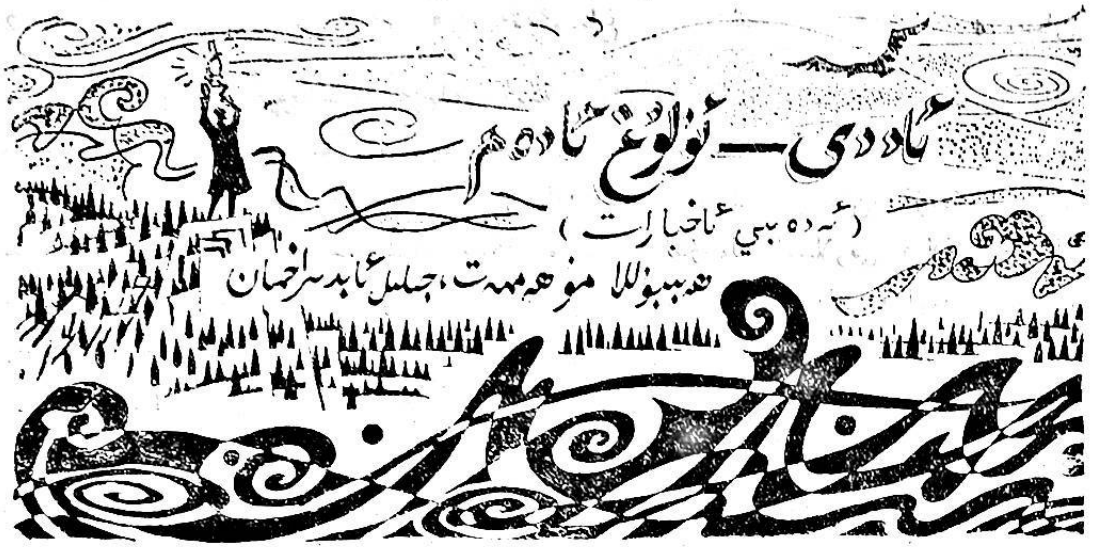 ئاددىي — ئۇلۇغ ئادەم
(ئەدەبىي ئاخبارات)
ھەبىبۇللا مۇھەممەت، جىلىل ئابدىراخمان